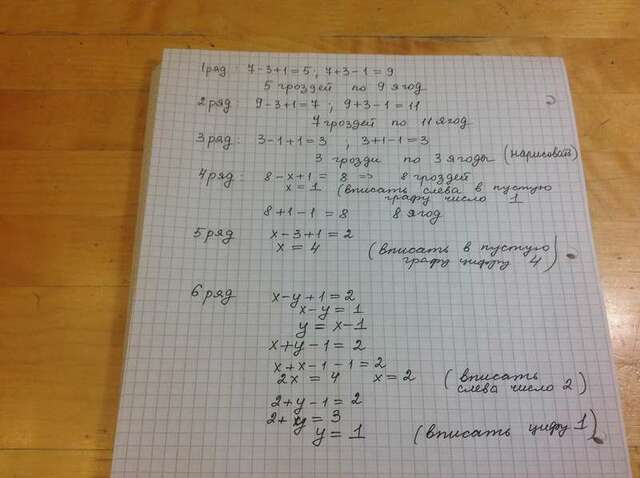 1 ряд: 7-3+1=5; 7+3-1=9
5 гроздей по 9 ягод
2 ряд: 9-3+1=7; 9+3-1=11
7 гроздей по 11 ягод
3 ряд: 3-1+1=3, 3+1-1=3
3 грозди по 3 ягоды (нарисоват)
4 ряд: 8-x+1=8 => 8 гроздей
x=1 (вписать слева в пустую
графу число 1
8+1-1=8 8 ягод
5 ряд x-3+1=2
x=4 (вписать в пустую
графу цифру 4)
6 ряд x-y+1=2
x-y=1
y=x-1
x+y-1=2
x+x-1-1=2
2x=4 x=2 (вписать
слева число 2)
2+y-1=2
2+y=3
y=1 (вписать цифу 1)